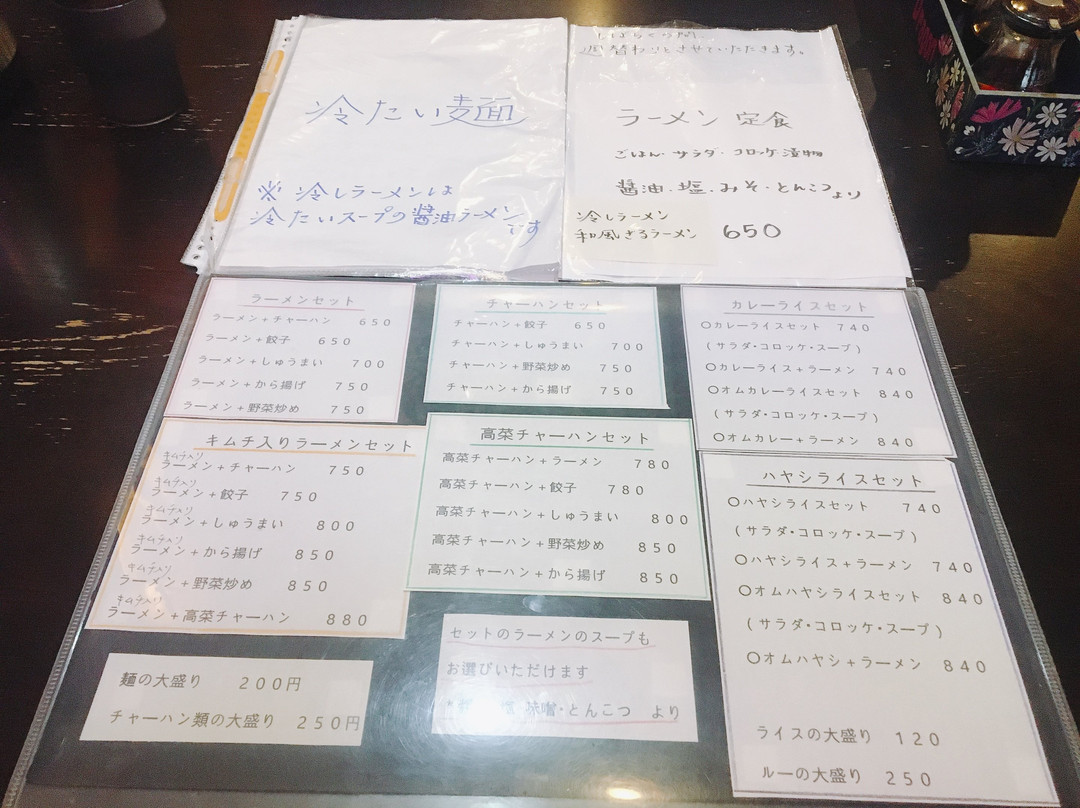 冷たい麺
※ 冷しラーメンは
冷たいスープの醤油ラーメン
です
しばらくの間、
週替わりとさせていただきます。
ラーメン 定食
ごはん・サラダ・コロッケ・漬物
醤油・塩・みそ・とんこつ より
冷しラーメン
和風ざるラーメン 650
ラーメンセット
ラーメン+チャーハン 650
ラーメン+餃子 650
ラーメン+しゅうまい 700
ラーメン+から揚げ 750
ラーメン+野菜炒め 750
チャーハンセット
チャーハン+餃子 650
チャーハン+しゅうまい 700
チャーハン+野菜炒め 750
チャーハン+から揚げ 750
カレーライスセット
〇カレーライスセット 740
(サラダ・コロッケ・スープ)
〇カレーライス+ラーメン 740
〇オムカレーライスセット 840
(サラダ・コロッケ・スープ)
〇オムカレー+ラーメン 840
キムチ入りラーメンセット
キムチ入り
ラーメン+チャーハン 750
キムチ入り
ラーメン+餃子 750
キムチ入り
ラーメン+しゅうまい 800
キムチ入り
ラーメン+から揚げ 850
キムチ入り
ラーメン+野菜炒め 850
キムチ入り
ラーメン+高菜チャーハン 880
高菜チャーハンセット
高菜チャーハン+ラーメン 780
高菜チャーハン+餃子 780
高菜チャーハン+しゅうまい 800
高菜チャーハン+野菜炒め 850
高菜チャーハン+から揚げ 850
ハヤシライスセット
〇ハヤシライスセット 740
(サラダ・コロッケ・スープ)
〇ハヤシライス+ラーメン 740
〇オムハヤシライスセット 840
(サラダ・コロッケ・スープ)
〇オムハヤシ+ラーメン 840
ライスの大盛り 120
ルーの大盛り 250
麺の大盛り 200円
チャーハン類の大盛り 250円
セットのラーメンのスープも
お選びいただけます
味噌・とんこつ より